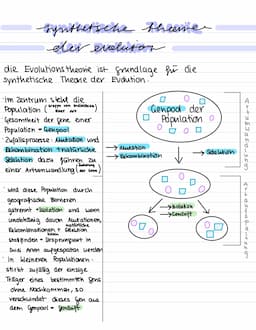 synthetische theorie
der evolution
die Evolutionstheorie ist Grundlage für die
synthetische Theorie der Evolution.
Im Zentrum steht die
Population
Gesamtheit der Gene einer
Population = Genpool
Zufallsprozesse: Mutation und
Rekombination + natürliche
Selektion dazu führen zu
einer Artumwandlung
wird diese Population durch
geografische Barrieren
getrennt = Isolation und wenn
unabhängig davon Mutationen,
Rekombinationen + Selektion
stattfinden = Ursprungsart in
zwei Arten aufgespalten werden
in kleineren Populationen
stirbt zufällig der einzige
Träger eines bestimmten Gens
ohne Nachkommen, so
verschwindet dieses Gen aus
dem Genpool = Gendrift
Genpool der
Population
→ Mutation
→ Rekombination
→ Selektion
→ Isolation
→ Gendrift
Artumwandlung
Artaufspaltung